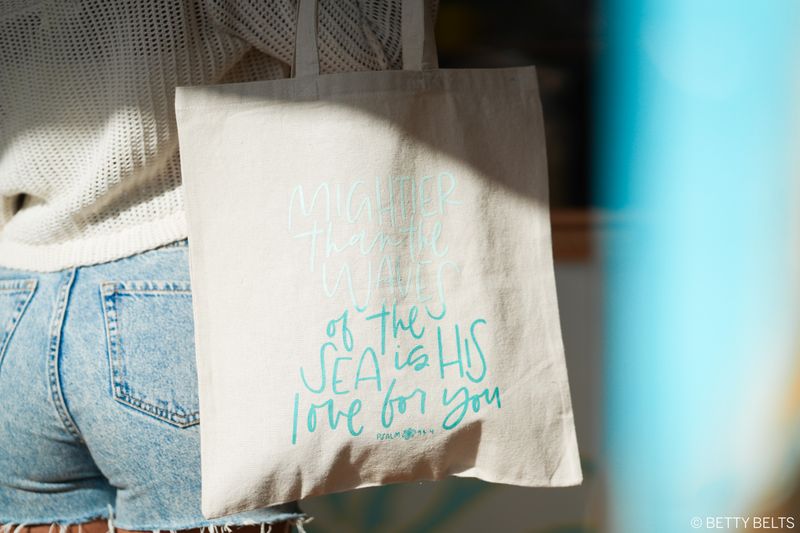 MIGHTIER
than the
WAVES
of the
SEA is HIS
love for you
PSALM 93:4
© BETTY BELTS